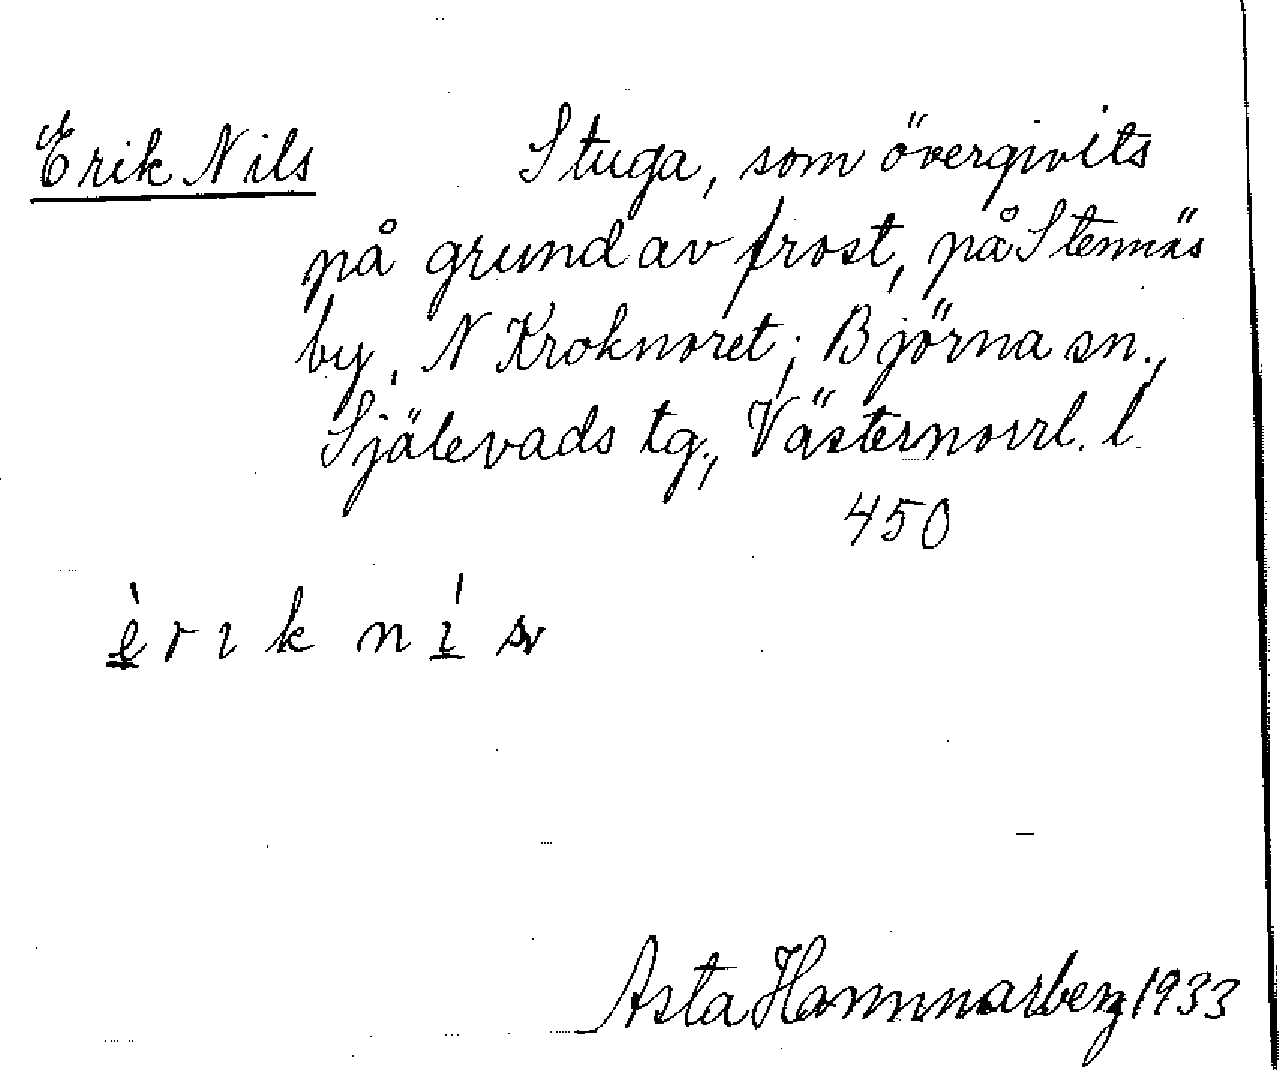 Erik Nils Stuga, som övergivits
på grund av frost, på Stennäs
by, N Kroknoret; Björna sn.,
Själevads tg., Västernorrl. l.
450
Asta Hammarberg 1933